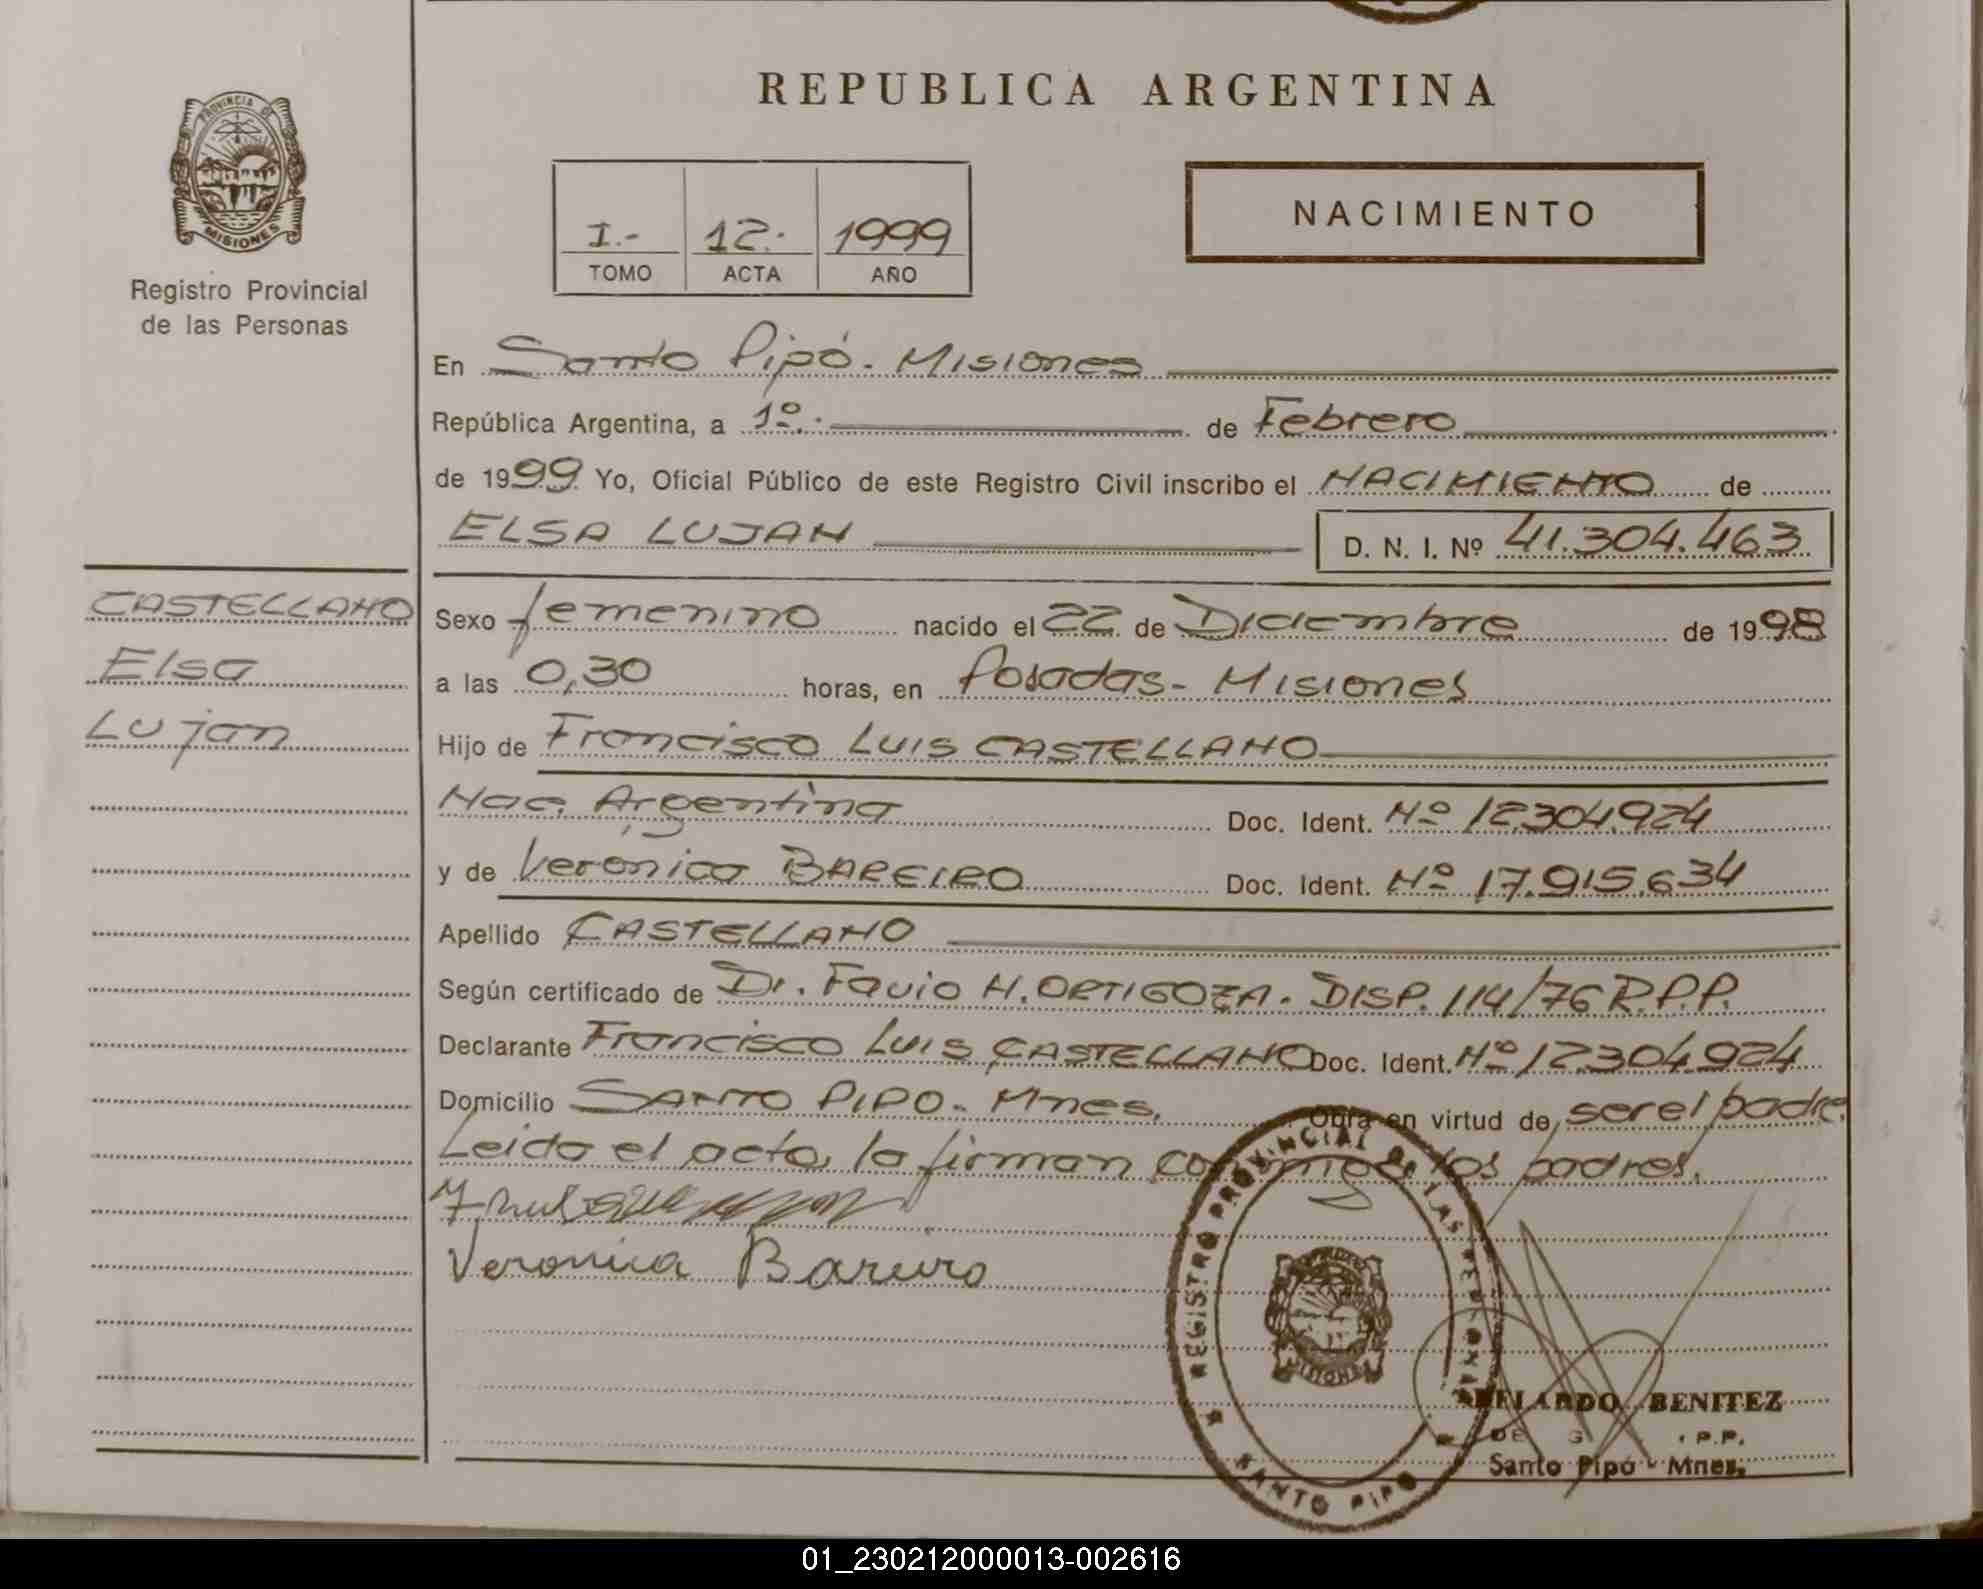 REPUBLICA ARGENTINA
PROVINCIA DE
MISIONES
Registro Provincial
de las Personas
I.- 12.- 1999
TOMO ACTA AÑO
NACIMIENTO
En Santo Pipó - Misiones
República Argentina, a 1º.- de Febrero
de 1999 Yo, Oficial Público de este Registro Civil inscribo el NACIMIENTO de
ELSA LUJAN D. N. I. Nº 41.304.463
CASTELLANO
Elsa
Lujan
Sexo femenino nacido el 22 de Diciembre de 1998
a las 0,30 horas, en Posadas - Misiones
Hijo de Francisco Luis CASTELLANO
Nac. Argentina Doc. Ident. Nº 12.304.924
y de Veronica BAREIRO Doc. Ident. Nº 17.915.634
Apellido CASTELLANO
Según certificado de Dr. Favio H. ORTIGOZA. DISP. 114/76 R.P.P.
Declarante Francisco Luis CASTELLANO Doc. Ident. Nº 12.304.924
Domicilio SANTO PIPO - Mnes. Obra en virtud de ser el padre.
Leida el acta, la firman conmigo los padres.
Veronica Bareiro
REGISTRO PROVINCIAL DE LAS PERSONAS
SANTO PIPO
MISIONES
ABELARDO BENITEZ
Santo Pipó - Mnes.
01_230212000013-002616